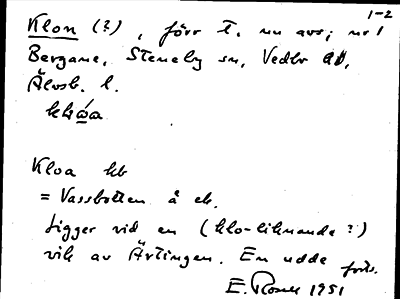 1-2
Klon (?), förr t. nu avs; nr 1
Bergane, Steneby sn, Vedbo hd,
Älvsb. l.
Kloa hb
= Vassbotten å ek.
Ligger vid en (klo-liknande?)
vik av Ärtingen. En udde forts.
E. Rosell 1951